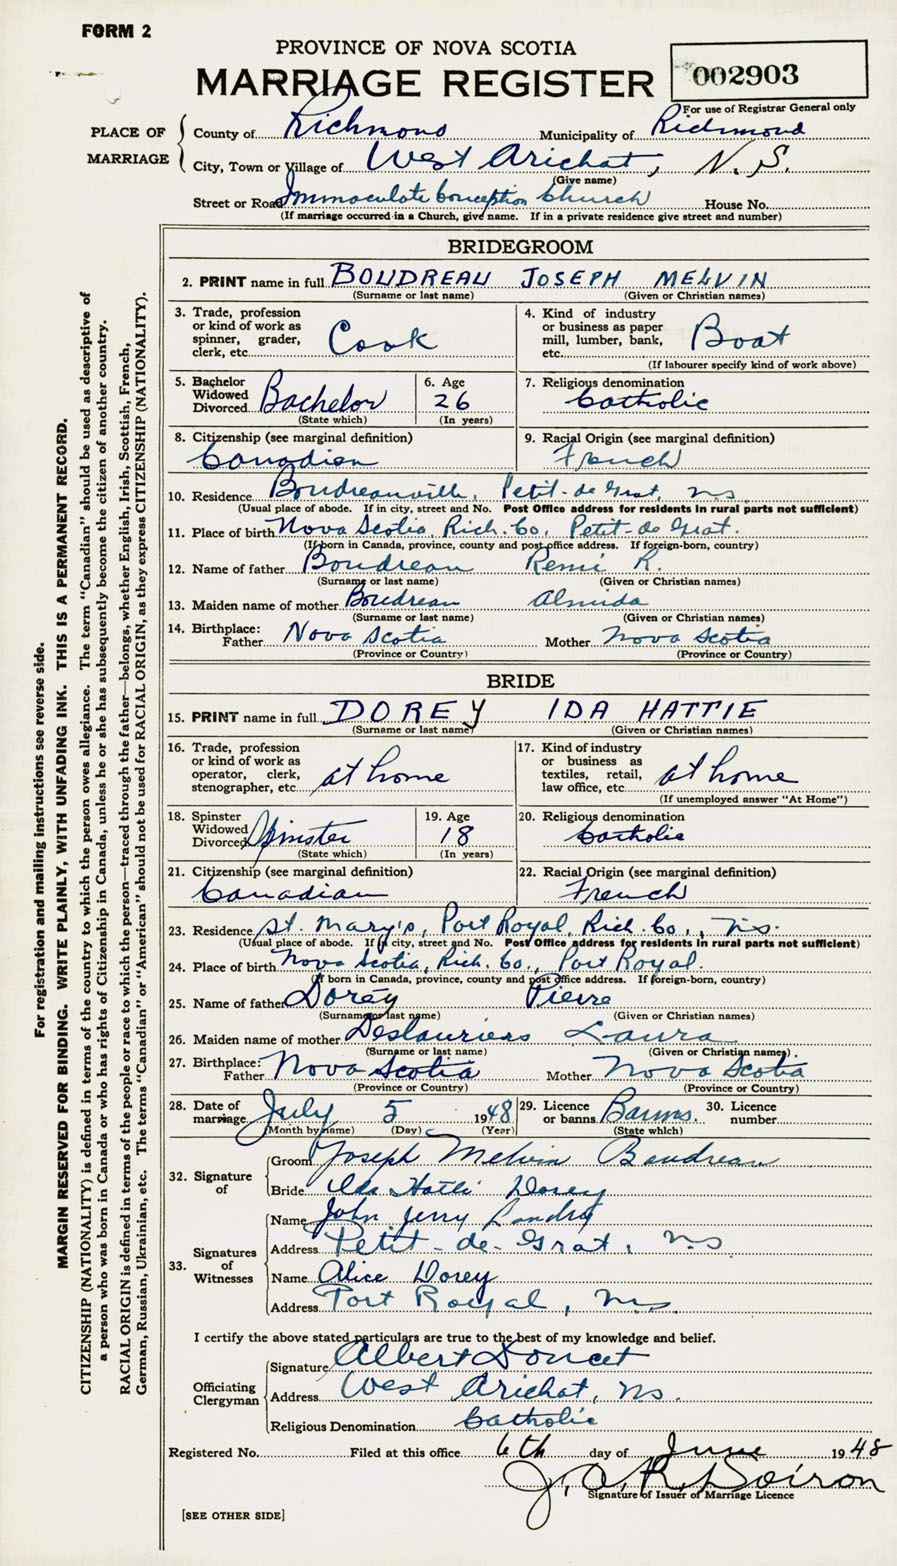 FORM 2
PROVINCE OF NOVA SCOTIA
MARRIAGE REGISTER
002903
For use of Registrar General only
PLACE OF MARRIAGE
County of Richmond Municipality of Richmond
City, Town or Village of West Arichat, N.S.
(Give name)
Street or Road Immaculate Conception Church House No.
(If marriage occurred in a Church, give name. If in a private residence give street and number)
BRIDEGROOM
2. PRINT name in full BOUDREAU JOSEPH MELVIN
(Surname or last name) (Given or Christian names)
3. Trade, profession or kind of work as spinner, grader, clerk, etc. Cook
4. Kind of industry or business as paper mill, lumber, bank, etc. Boat
(If labourer specify kind of work above)
5. Bachelor Widowed Divorced Bachelor
(State which)
6. Age 26
(In years)
7. Religious denomination Catholic
8. Citizenship (see marginal definition) Canadian
9. Racial Origin (see marginal definition) French
10. Residence Boudreauville, Petit-de Grat, N.S.
(Usual place of abode. If in city, street and No. Post Office address for residents in rural parts not sufficient)
11. Place of birth Nova Scotia, Rich. Co, Petit-de Grat.
(If born in Canada, province, county and post office address. If foreign-born, country)
12. Name of father Boudreau Remi R.
(Surname or last name) (Given or Christian names)
13. Maiden name of mother Boudreau Almida
(Surname or last name) (Given or Christian names)
14. Birthplace: Father Nova Scotia Mother Nova Scotia
(Province or Country) (Province or Country)
BRIDE
15. PRINT name in full DOREY IDA HATTIE
(Surname or last name) (Given or Christian names)
16. Trade, profession or kind of work as operator, clerk, stenographer, etc. at home
17. Kind of industry or business as textiles, retail, law office, etc. at home
(If unemployed answer "At Home")
18. Spinster Widowed Divorced Spinster
(State which)
19. Age 18
(In years)
20. Religious denomination Catholic
21. Citizenship (see marginal definition) Canadian
22. Racial Origin (see marginal definition) French
23. Residence St. Mary's, Port Royal, Rich. Co., N.S.
(Usual place of abode. If in city, street and No. Post Office address for residents in rural parts not sufficient)
24. Place of birth Nova Scotia, Rich. Co., Port Royal.
(If born in Canada, province, county and post office address. If foreign-born, country)
25. Name of father Dorey Pierre
(Surname or last name) (Given or Christian names)
26. Maiden name of mother Deslauriers Laura
(Surname or last name) (Given or Christian names)
27. Birthplace: Father Nova Scotia Mother Nova Scotia
(Province or Country) (Province or Country)
28. Date of marriage July 5 1948
(Month by name) (Day) (Year)
29. Licence or banns Banns.
(State which)
30. Licence number
32. Signature of
Groom Joseph Melvin Boudreau
Bride Ida Hattie Dorey
33. Signatures of Witnesses
Name John Jerry Landry
Address Petit-de-Grat, N.S.
Name Alice Dorey
Address Port Royal, N.S.
I certify the above stated particulars are true to the best of my knowledge and belief.
Officiating Clergyman
Signature Albert Doucet
Address West Arichat, NS.
Religious Denomination Catholic
Registered No. Filed at this office 6th day of June 1948
J. A. R. Doiron
Signature of Issuer of Marriage Licence
[SEE OTHER SIDE]
For registration and mailing instructions see reverse side.
MARGIN RESERVED FOR BINDING. WRITE PLAINLY, WITH UNFADING INK. THIS IS A PERMANENT RECORD.
CITIZENSHIP (NATIONALITY) is defined in terms of the country to which the person owes allegiance. The term "Canadian" should be used as descriptive of
a person who was born in Canada or who has rights of Citizenship in Canada, unless he or she has subsequently become the citizen of another country.
RACIAL ORIGIN is defined in terms of the people or race to which the person—traced through the father—belongs, whether English, Irish, Scottish, French,
German, Russian, Ukrainian, etc. The terms "Canadian" or "American" should not be used for RACIAL ORIGIN, as they express CITIZENSHIP (NATIONALITY).